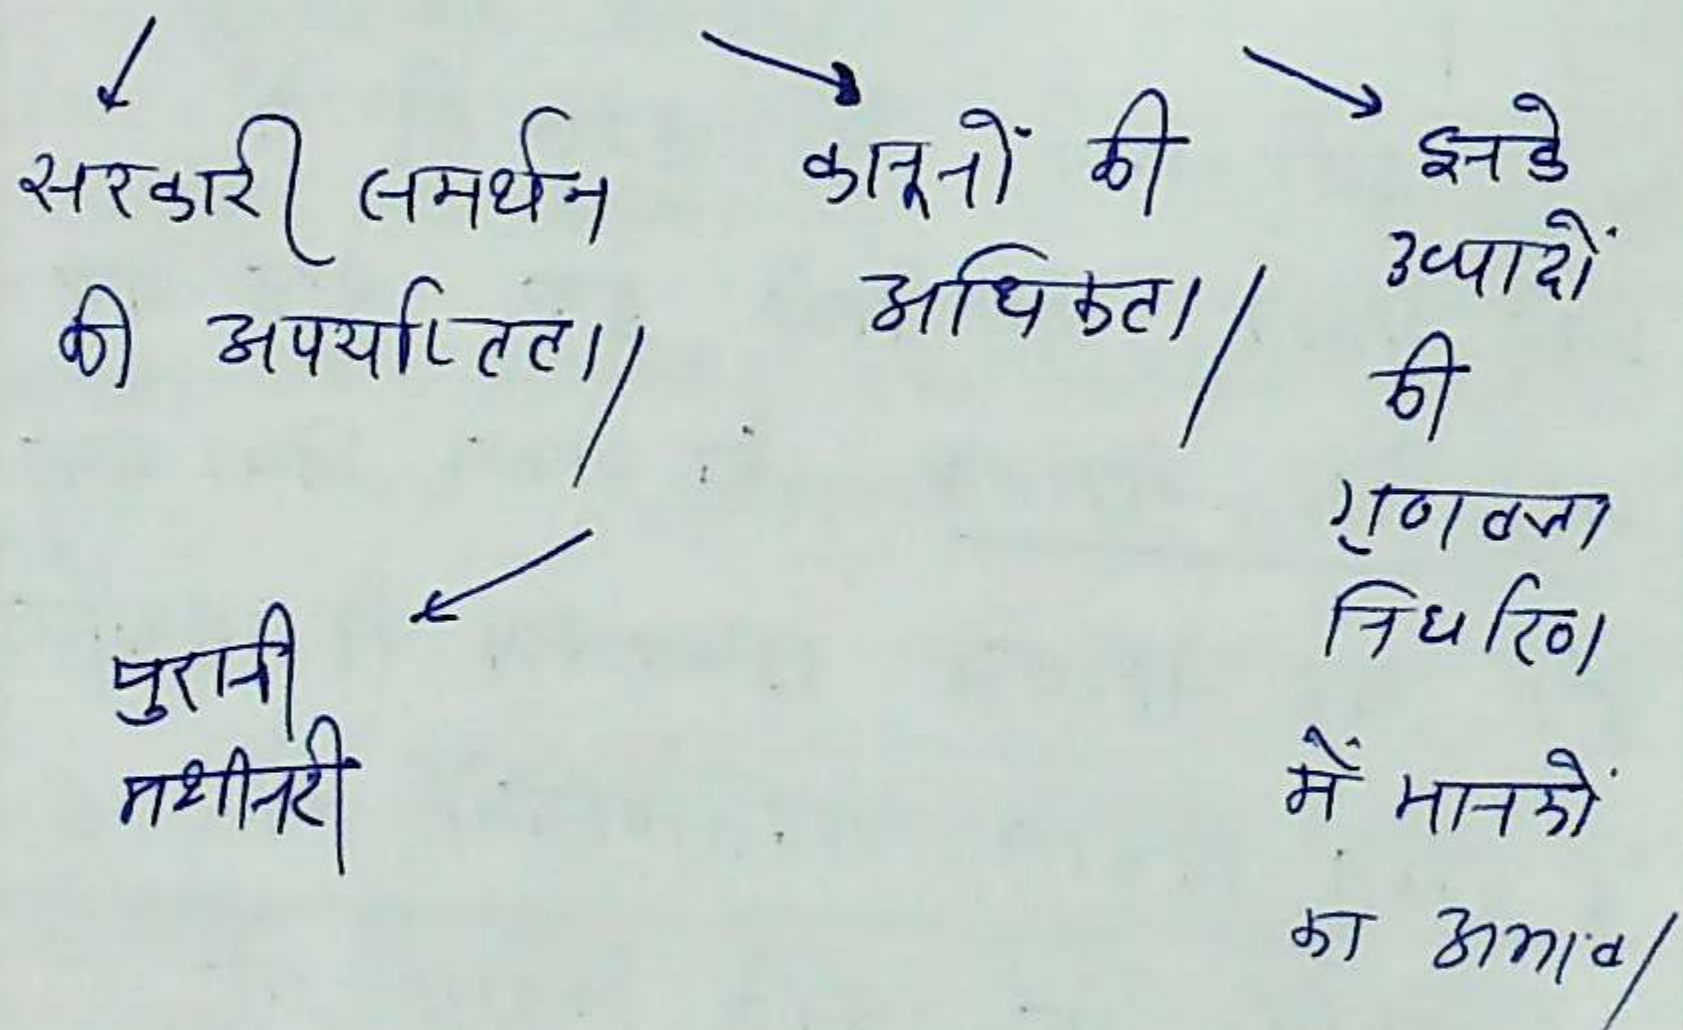 सरकारी समर्थन
की अपर्याप्तता।
कानूनों की
अधिकता।
इनके
उत्पादों
की
गुणवत्ता
निर्धारण
में मानकों
का अभाव।
पुरानी
मशीनरी